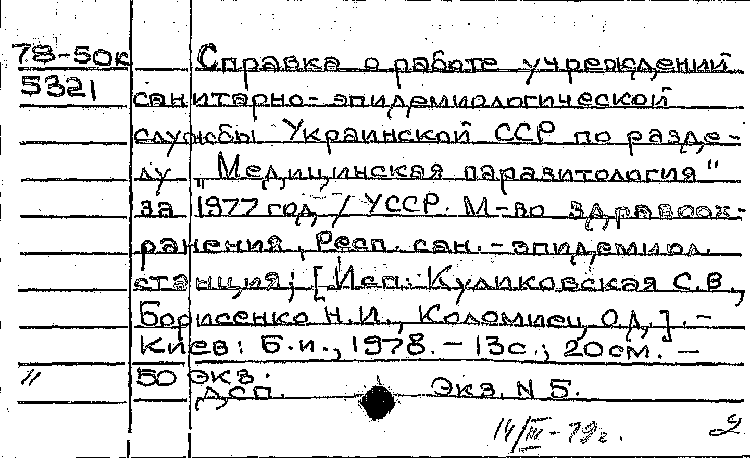 78-50к Справка о работе учреждений
5321 санитарно-эпидемиологической
службы Украинской ССР по разде-
лу „Медицинская паразитология"
за 1977 год / УССР. М-во здравоох-
ранения, Респ. сан.-эпидемиол.
станция; [Исп.: Куликовская С.В.,
Борисенко Н.И., Коломиец О.Д.]. -
Киев: Б.и., 1978. - 13с.; 20см. -
" 50 экз.
ДСП. Экз. N 5.
14/III-79г. 2